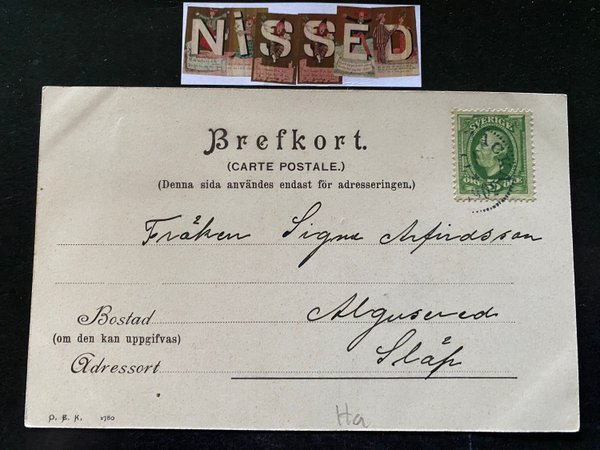 NISSED
Brefkort.
(CARTE POSTALE.)
(Denna sida användes endast för adresseringen.)
SVERIGE
Fröken Signe Arfvidsson
Bostad
(om den kan uppgifvas)
Adressort
Släp
D. E. K. 1780
Ha